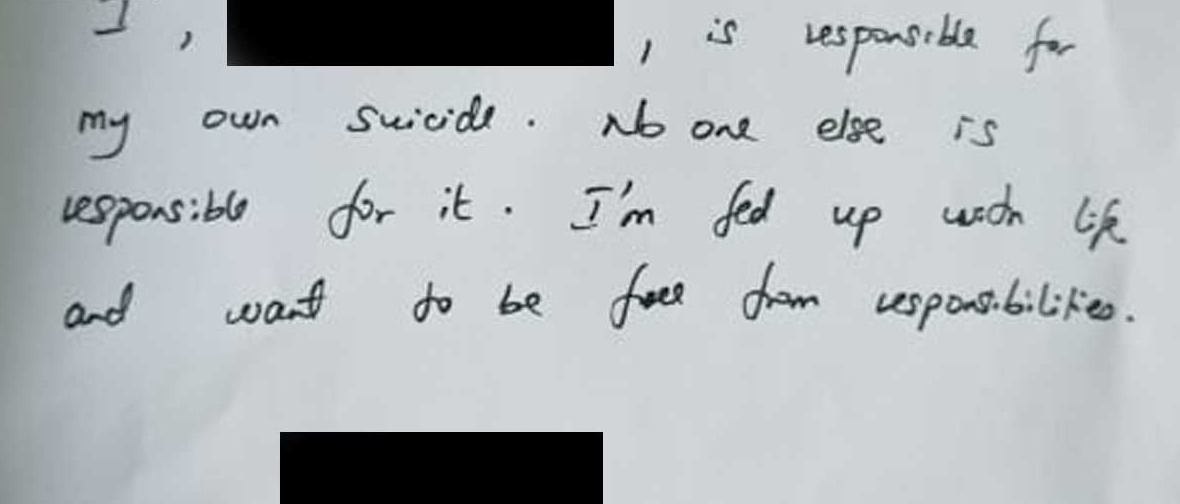 I, , is responsible for
my own suicide. No one else is
responsible for it. I'm fed up with life
and want to be free from responsibilities.